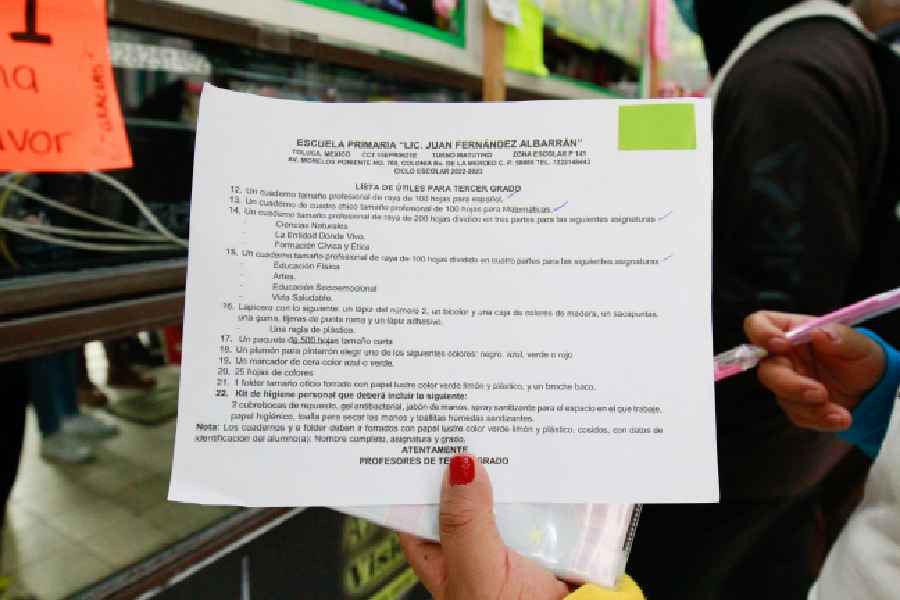 ESCUELA PRIMARIA “LIC. JUAN FERNÁNDEZ ALBARRÁN”
TOLUCA, MÉXICO TURNO MATUTINO ZONA ESCOLAR P 141
AV. MORELOS PONIENTE NO. COLONIA LA MERCED C. P. TEL.
CICLO ESCOLAR 2022-2023
LISTA DE ÚTILES PARA TERCER GRADO
12. Un cuaderno tamaño profesional de raya de 100 hojas para español.
13. Un cuaderno de cuadro chico tamaño profesional de 100 hojas para Matemáticas.
14. Un cuaderno tamaño profesional de raya de 200 hojas dividido en tres partes para las siguientes asignaturas
- Ciencias Naturales
- La Entidad Donde Vivo.
- Formación Cívica y Ética
15. Un cuaderno tamaño profesional de raya de 100 hojas dividido en cuatro partes para las siguientes asignaturas
- Educación Física
- Artes.
- Educación Socioemocional
- Vida Saludable.
16. Lapicera con lo siguiente: un lápiz del número 2, un bicolor y una caja de colores de madera, un sacapuntas,
una goma, tijeras de punta roma y un lápiz adhesivo.
Una regla de plástico.
17. Un paquete de 500 hojas tamaño carta
18. Un plumón para pintarrón elegir uno de los siguientes colores: negro, azul, verde o rojo
19. Un marcador de cera color azul o verde.
20. 25 hojas de colores
21. 1 folder tamaño oficio forrado con papel lustre color verde limón y plástico, y un broche baco.
22. Kit de higiene personal que deberá incluir lo siguiente:
2 cubrebocas de repuesto, gel antibacterial, jabón de manos, spray sanitizante para el espacio en el que trabaje,
papel higiénico, toalla para secar las manos y toallitas húmedas sanitizantes.
Nota: Los cuadernos y el folder deben ir forrados con papel lustre color verde limón y plástico, cosidos, con datos de
identificación del alumno(a): Nombre completo, asignatura y grado.
ATENTAMENTE
PROFESORES DE GRADO
na
avor
GRACIAS